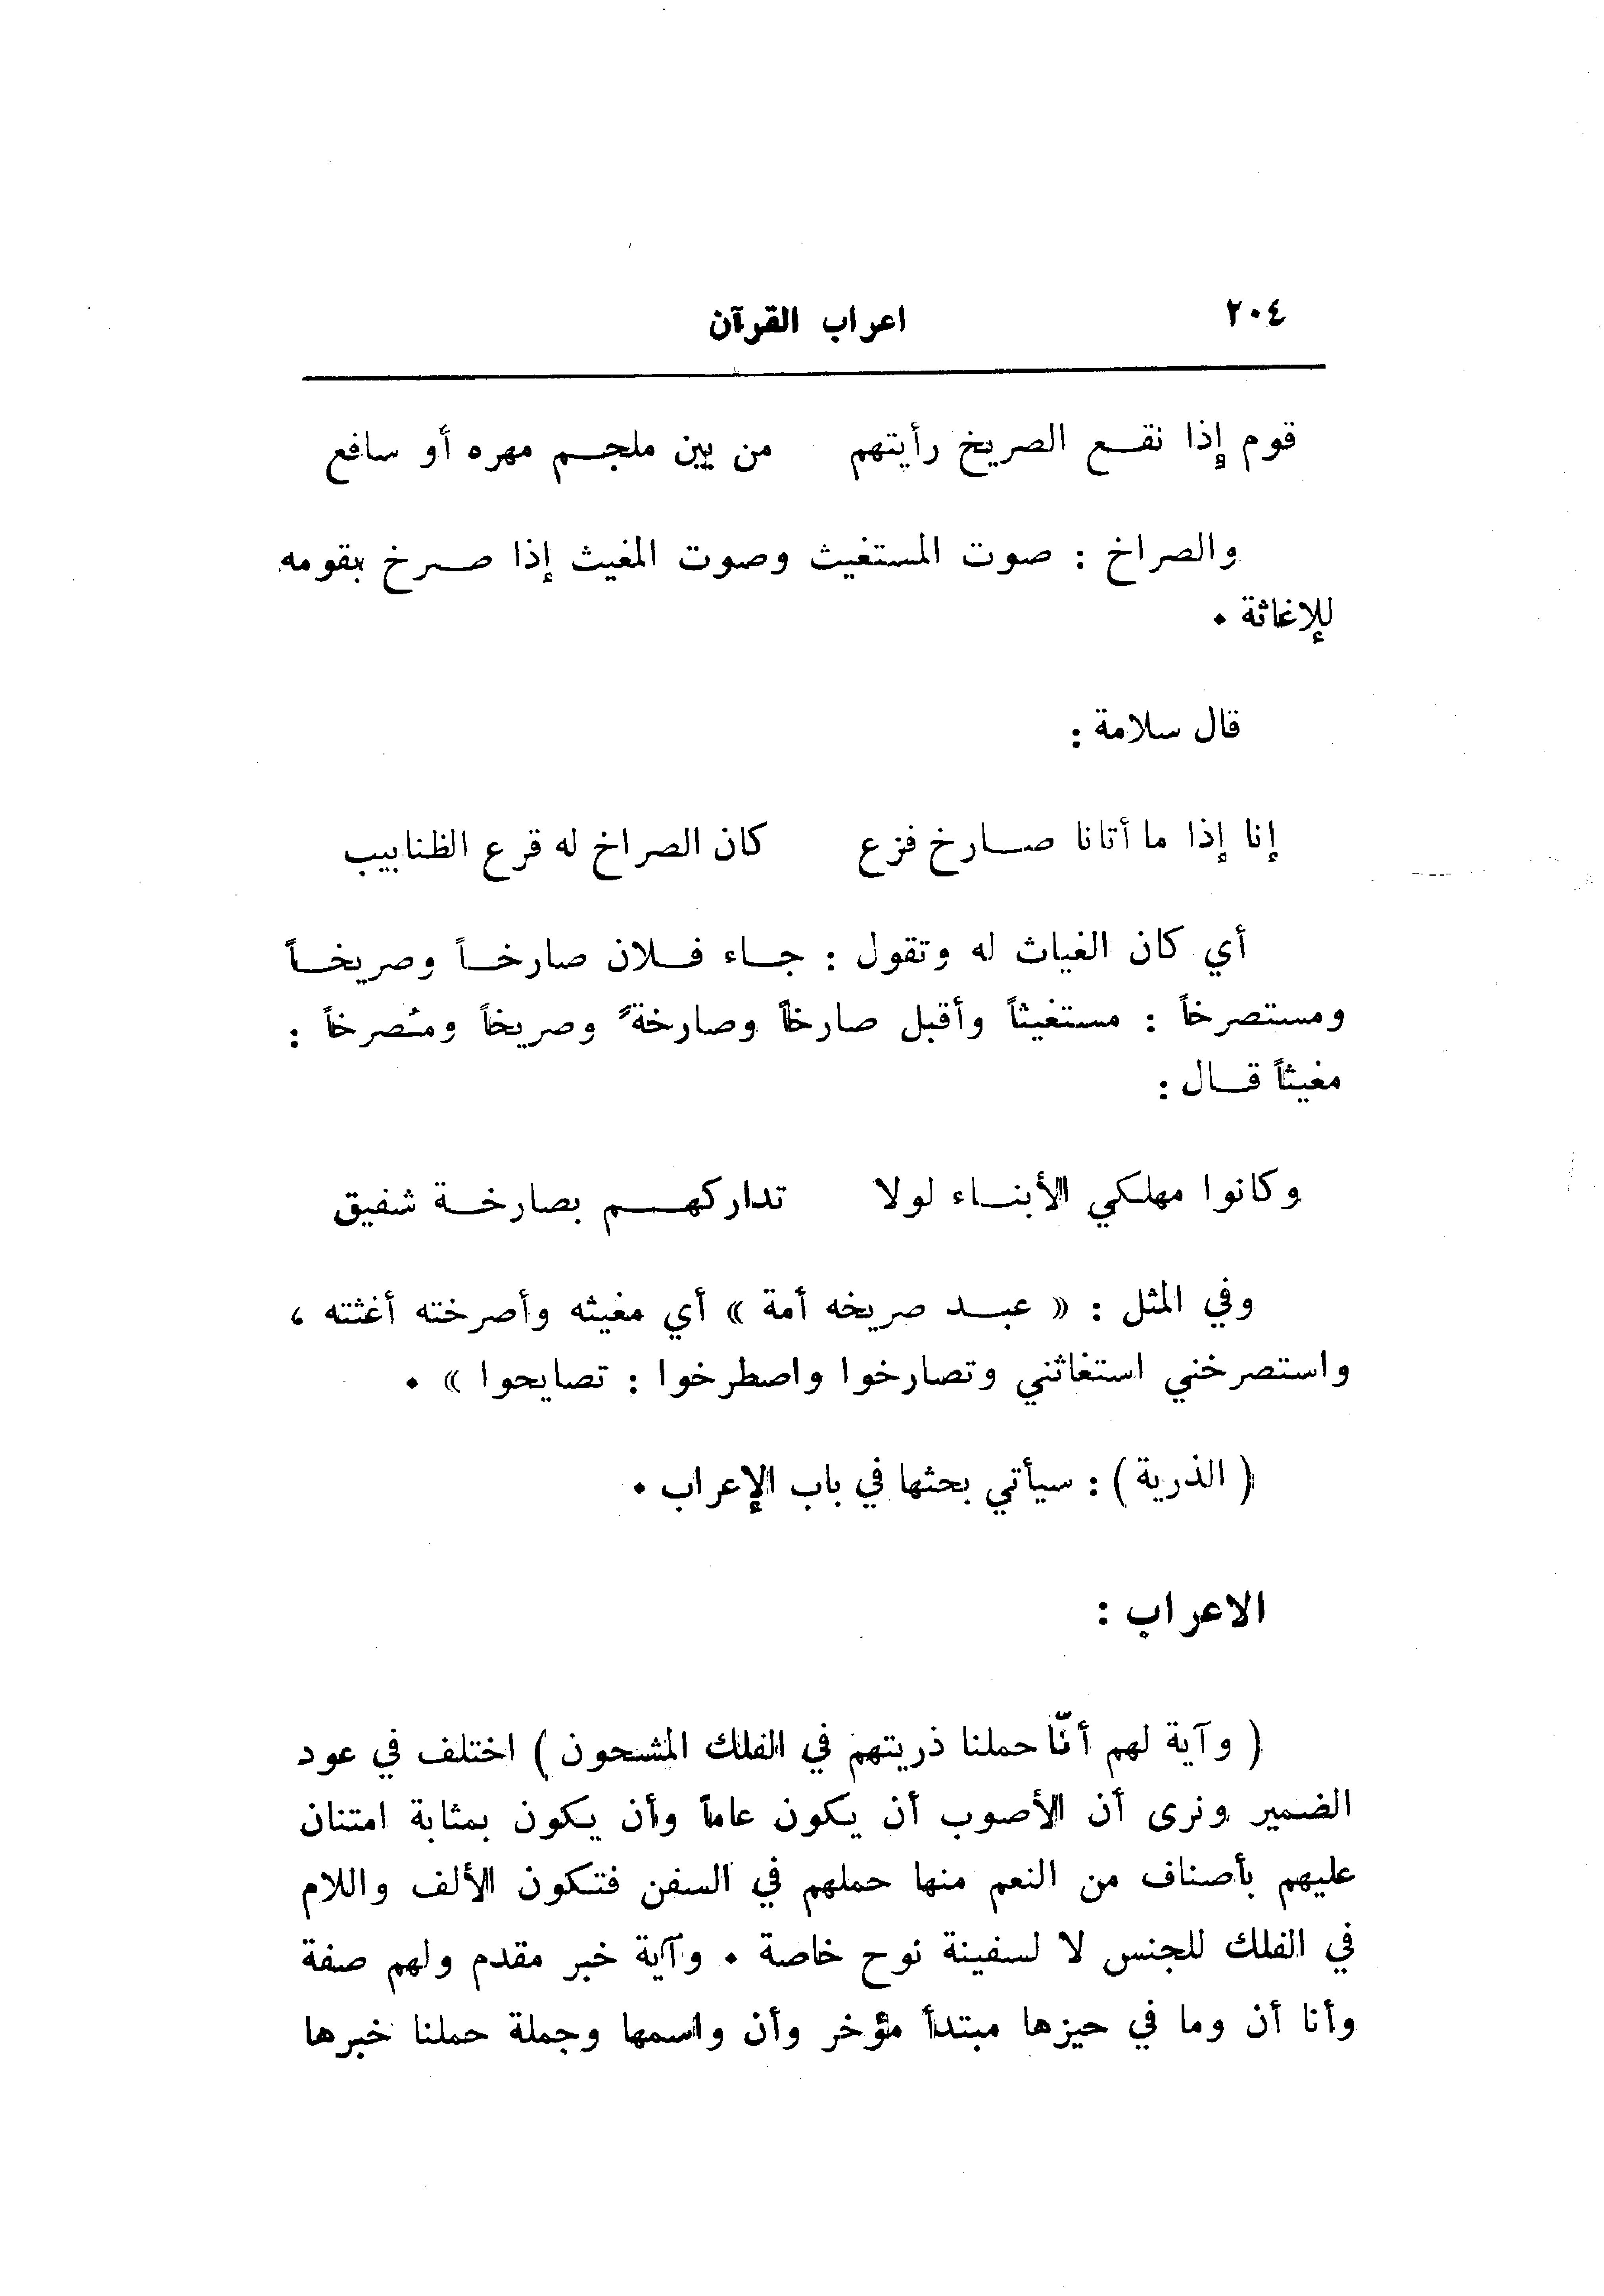 ٢٠٤ اعراب القرآن
قوم إذا نقع الصريخ رأيتهم من بين ملجم مهره أو سافع
والصراخ : صوت المستغيث وصوت المغيث إذا صرخ بقومه
للإغاثة .
قال سلامة :
إنا إذا ما أتانا صارخ فزع كان الصراخ له قرع الظنابيب
أي كان الغياث له وتقول : جاء فلان صارخاً وصريخاً
ومستصرخاً : مستغيثاً وأقبل صارخاً وصارخةً وصريخاً ومُصرخاً :
مغيثاً قال :
وكانوا مهلكي الأبناء لولا تداركهم بصارخة شفيق
وفي المثل : « عبد صريخه أمة » أي مغيثه وأصرخته أغثته ،
واستصرخني استغاثني وتصارخوا واصطرخوا : تصايحوا » .
( الذرية ) : سيأتي بحثها في باب الإعراب .
الاعراب :
( وآية لهم أنّا حملنا ذريتهم في الفلك المشحون ) اختلف في عود
الضمير ونرى أن الأصوب أن يكون عاماً وأن يكون بمثابة امتنان
عليهم بأصناف من النعم منها حملهم في السفن فتكون الألف واللام
في الفلك للجنس لا لسفينة نوح خاصة . وآية خبر مقدم ولهم صفة
وأنا أن وما في حيزها مبتدأ مؤخر وأن واسمها وجملة حملنا خبرها